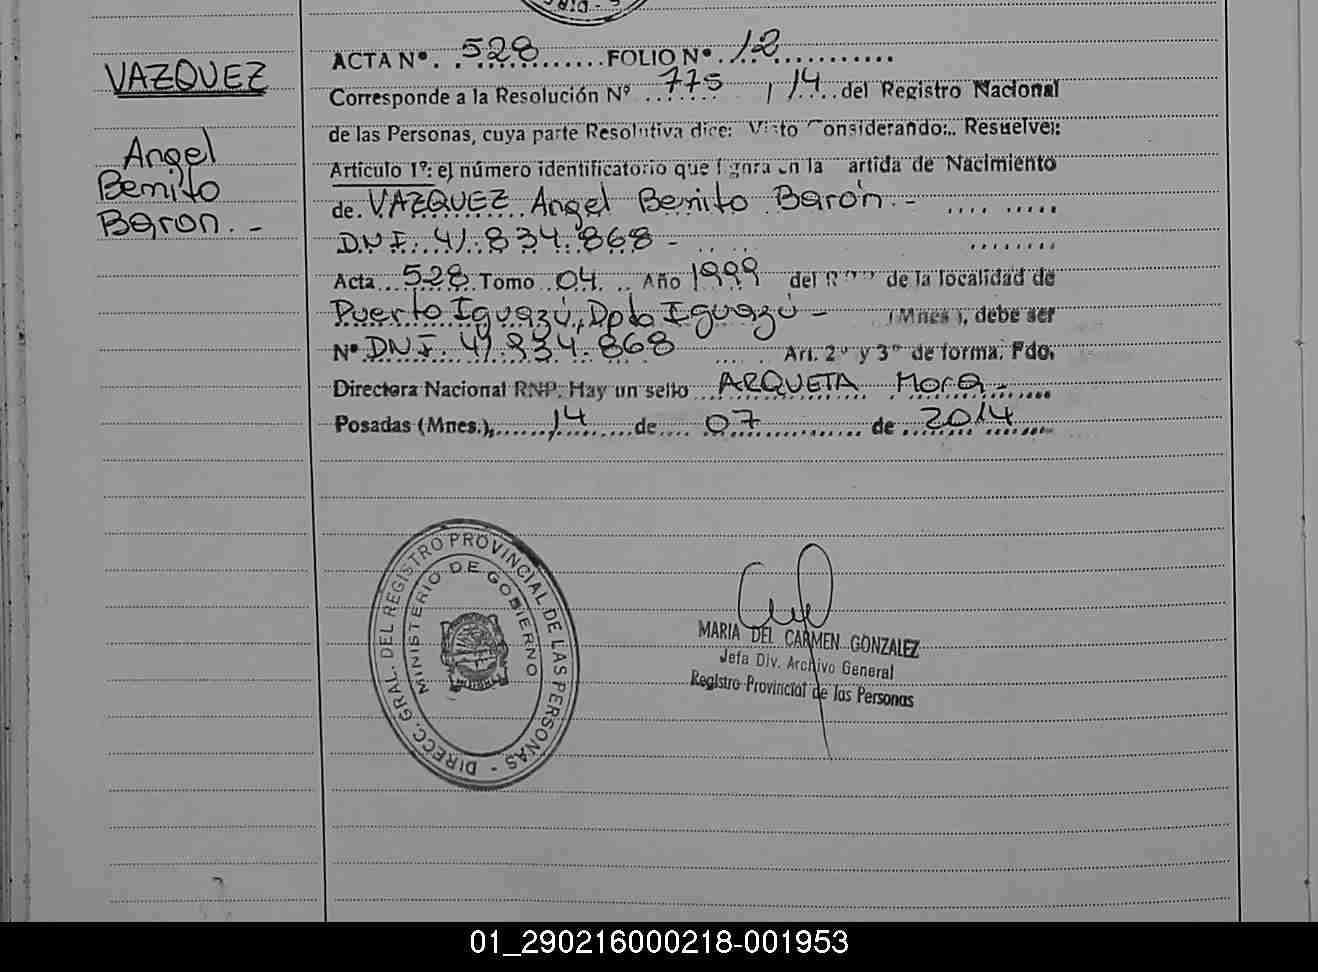 VAZQUEZ
Angel
Benito
Baron.-
ACTA Nº. 528 FOLIO Nº. 12
Corresponde a la Resolución Nº 775 / 14 del Registro Nacional
de las Personas, cuya parte Resolutiva dice: Visto Considerando:. Resuelve:
Artículo 1º: el número identificatorio que figura en la artida de Nacimiento
de. VAZQUEZ Angel Benito Barón.-
D.N.I. 41.834.868-
Acta 528 Tomo 04. Año 1999 del de la localidad de
Puerto Iguazú, Dpto Iguazú - (Mnes), debe ser
Nº DNI. 41.834.868 Art. 2º y 3º de forma. Fdo.
Directora Nacional RNP. Hay un sello ARQUETA Mora-
Posadas (Mnes.), 14 de 07 de 2014
DIRECC. GRAL. DEL REGISTRO PROVINCIAL DE LAS PERSONAS -
MINISTERIO DE GOBIERNO
MARIA DEL CARMEN GONZALEZ
Jefa Div. Archivo General
Registro Provincial de las Personas
01_290216000218-001953